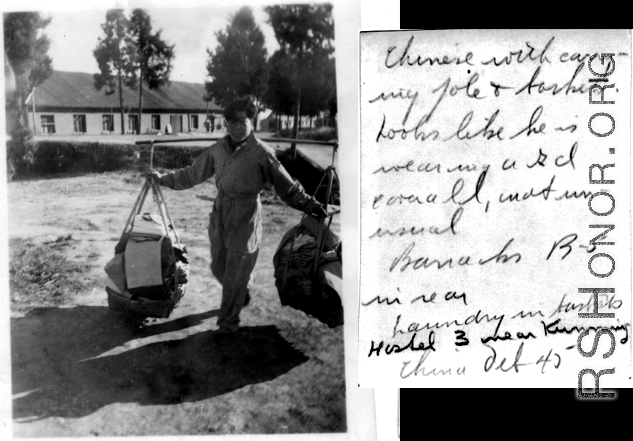 Chinese with carry-
ing pole & baskets.
Looks like he is
wearing a
coverall, not un-
usual
Barracks B-5
in rear
Laundry in baskets
Hostel 3 near Kunming
China Oct 45
RSHONOR.ORG